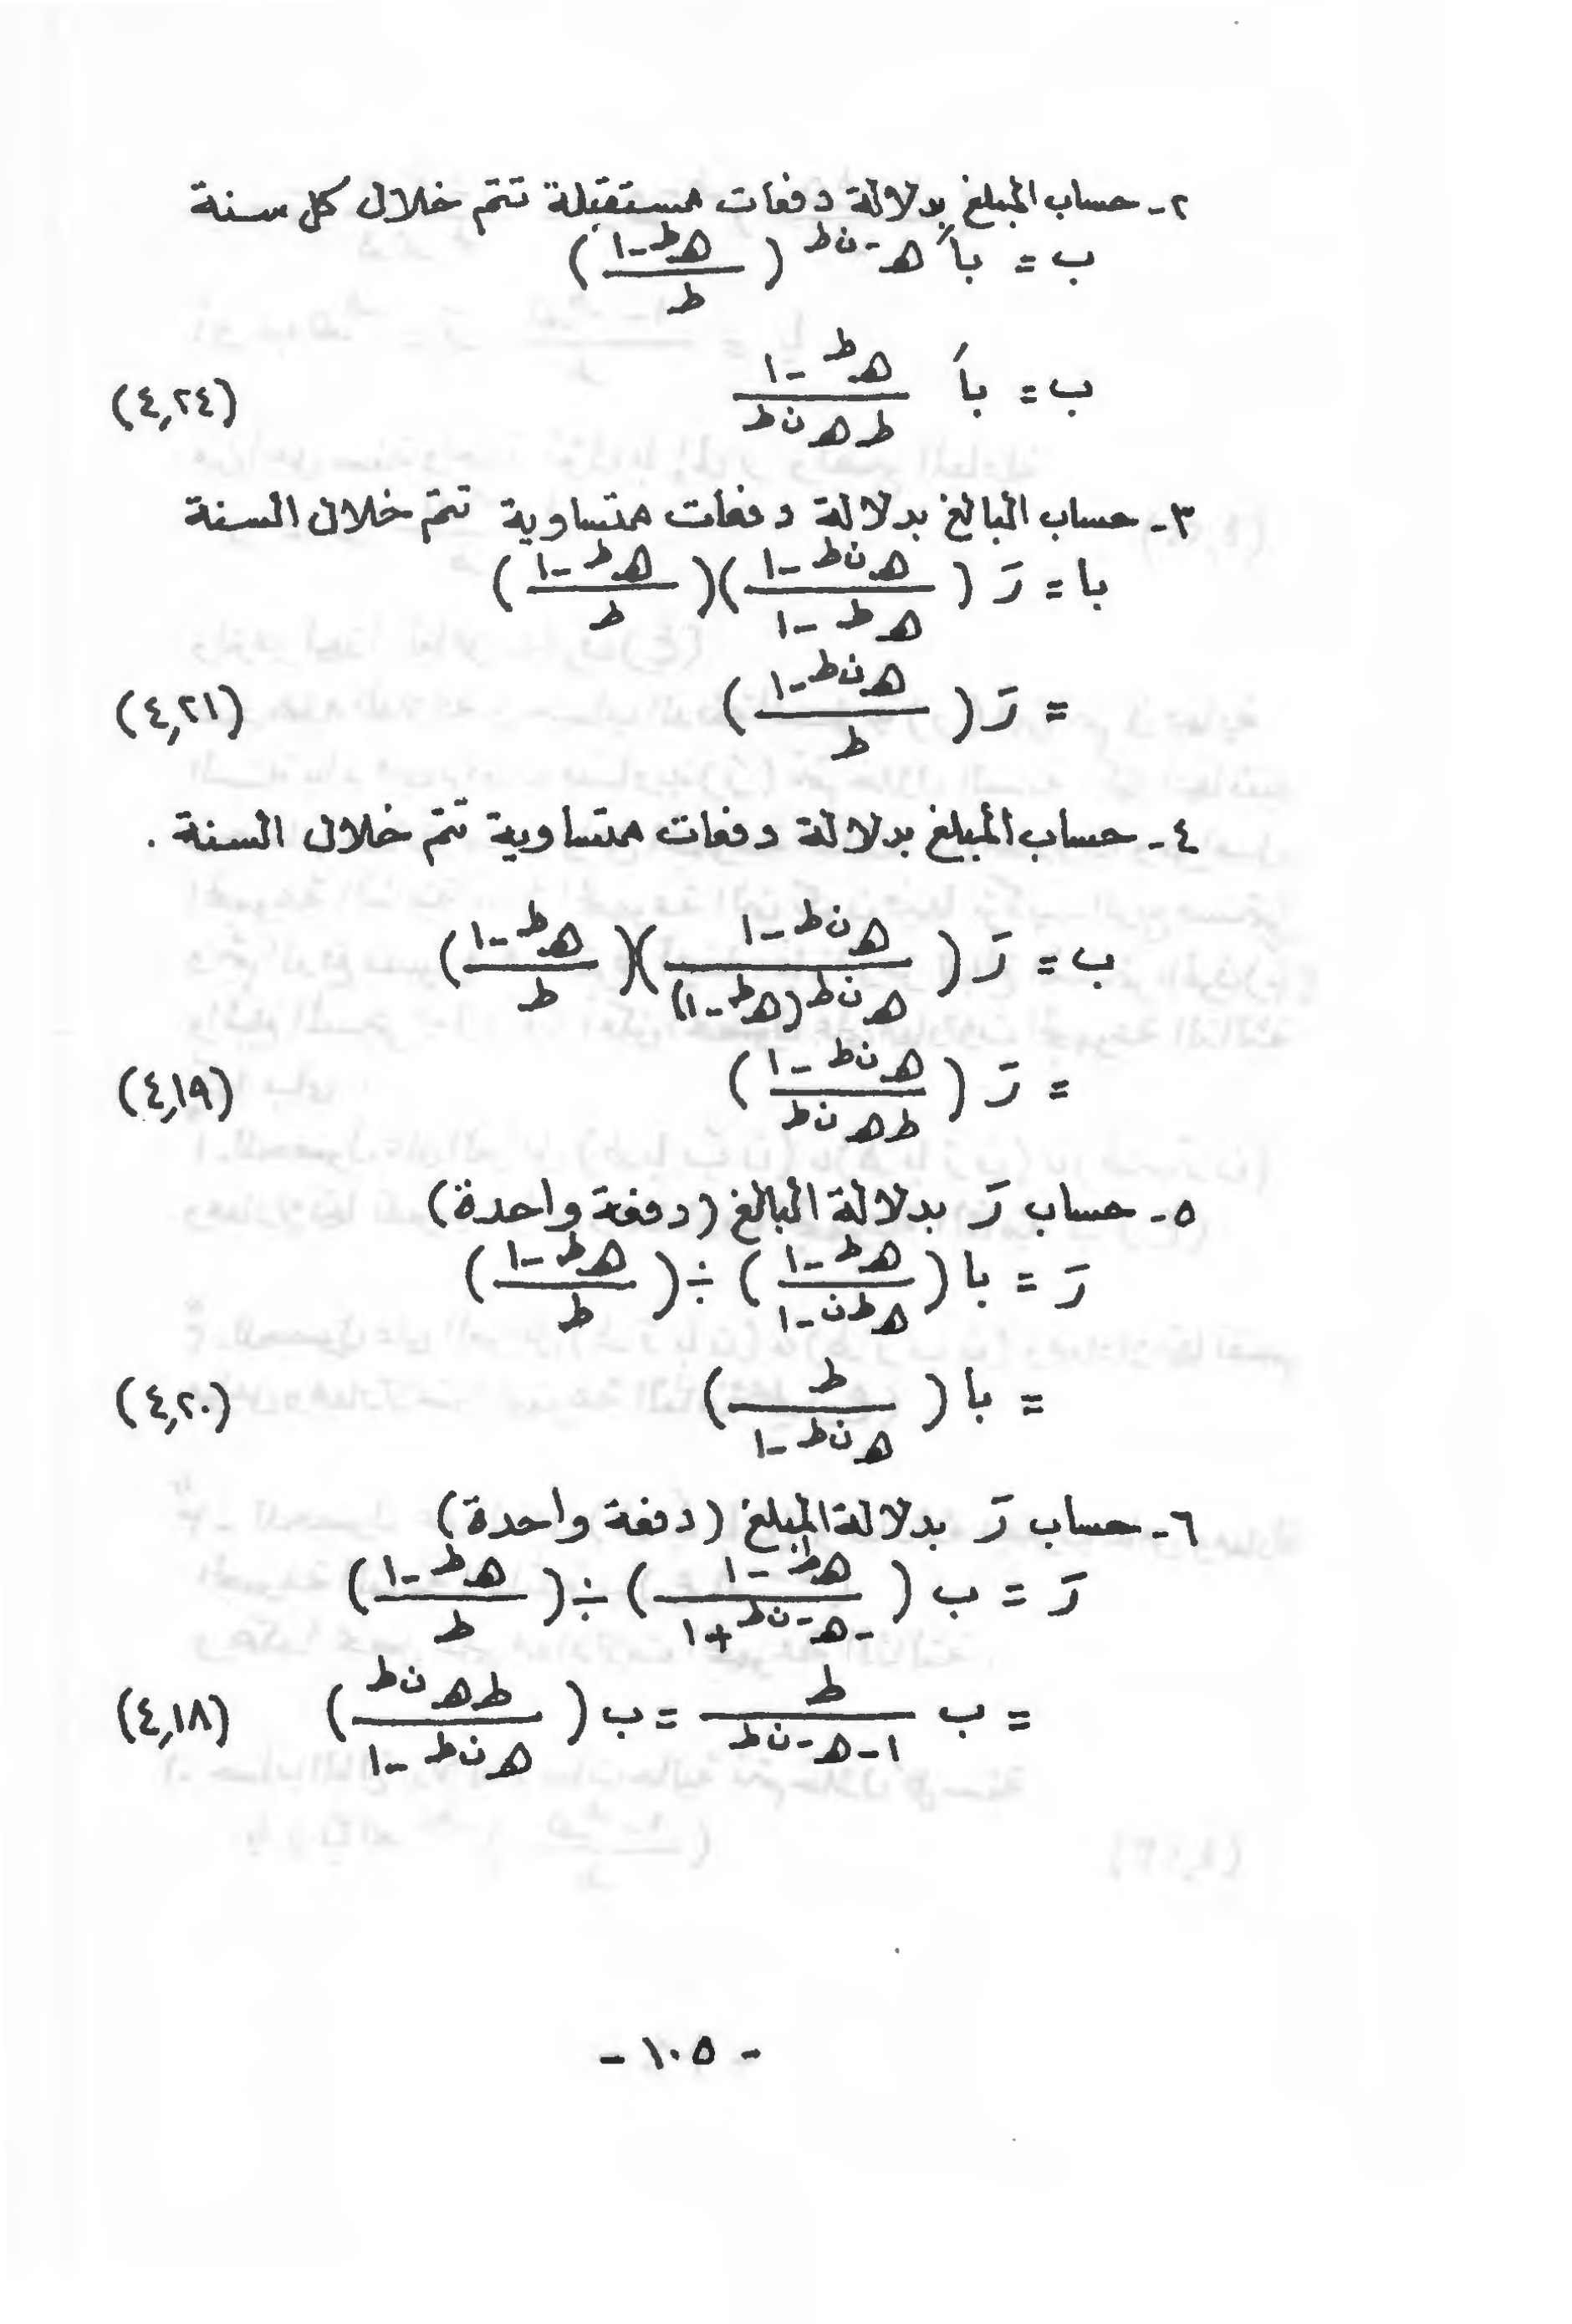 ٢- حساب المبلغ بدلالة دفعات مستقبلة تتم خلال كل سنة
ب = باَ هـ^(-ن ط) ( (هـ^ط - ١) / ط )
ب = باَ (هـ^ط - ١) / (ط هـ^(ن ط)) (٤,٢٤)
٣- حساب البالغ بدلالة دفعات متساوية تتم خلال السنة
با = رَ ( (هـ^(ن ط) - ١) / (هـ^ط - ١) ) ( (هـ^ط - ١) / ط )
= رَ ( (هـ^(ن ط) - ١) / ط ) (٤,٢١)
٤- حساب المبلغ بدلالة دفعات متساوية تتم خلال السنة .
ب = رَ ( (هـ^(ن ط) - ١) / (هـ^(ن ط) (هـ^ط - ١)) ) ( (هـ^ط - ١) / ط )
= رَ ( (هـ^(ن ط) - ١) / (ط هـ^(ن ط)) ) (٤,١٩)
٥- حساب رَ بدلالة البالغ (دفعة واحدة)
رَ = با ( (هـ^ط - ١) / (هـ^(ط ن) - ١) ) ÷ ( (هـ^ط - ١) / ط )
= با ( ط / (هـ^(ن ط) - ١) ) (٤,٢٠)
٦- حساب رَ بدلالة المبلغ (دفعة واحدة)
رَ = ب ( (هـ^ط - ١) / (-هـ^(-ن ط) + ١) ) ÷ ( (هـ^ط - ١) / ط )
= ب ط / (١ - هـ^(-ن ط)) = ب ( (ط هـ^(ن ط)) / (هـ^(ن ط) - ١) ) (٤,١٨)
- ١٠٥ -